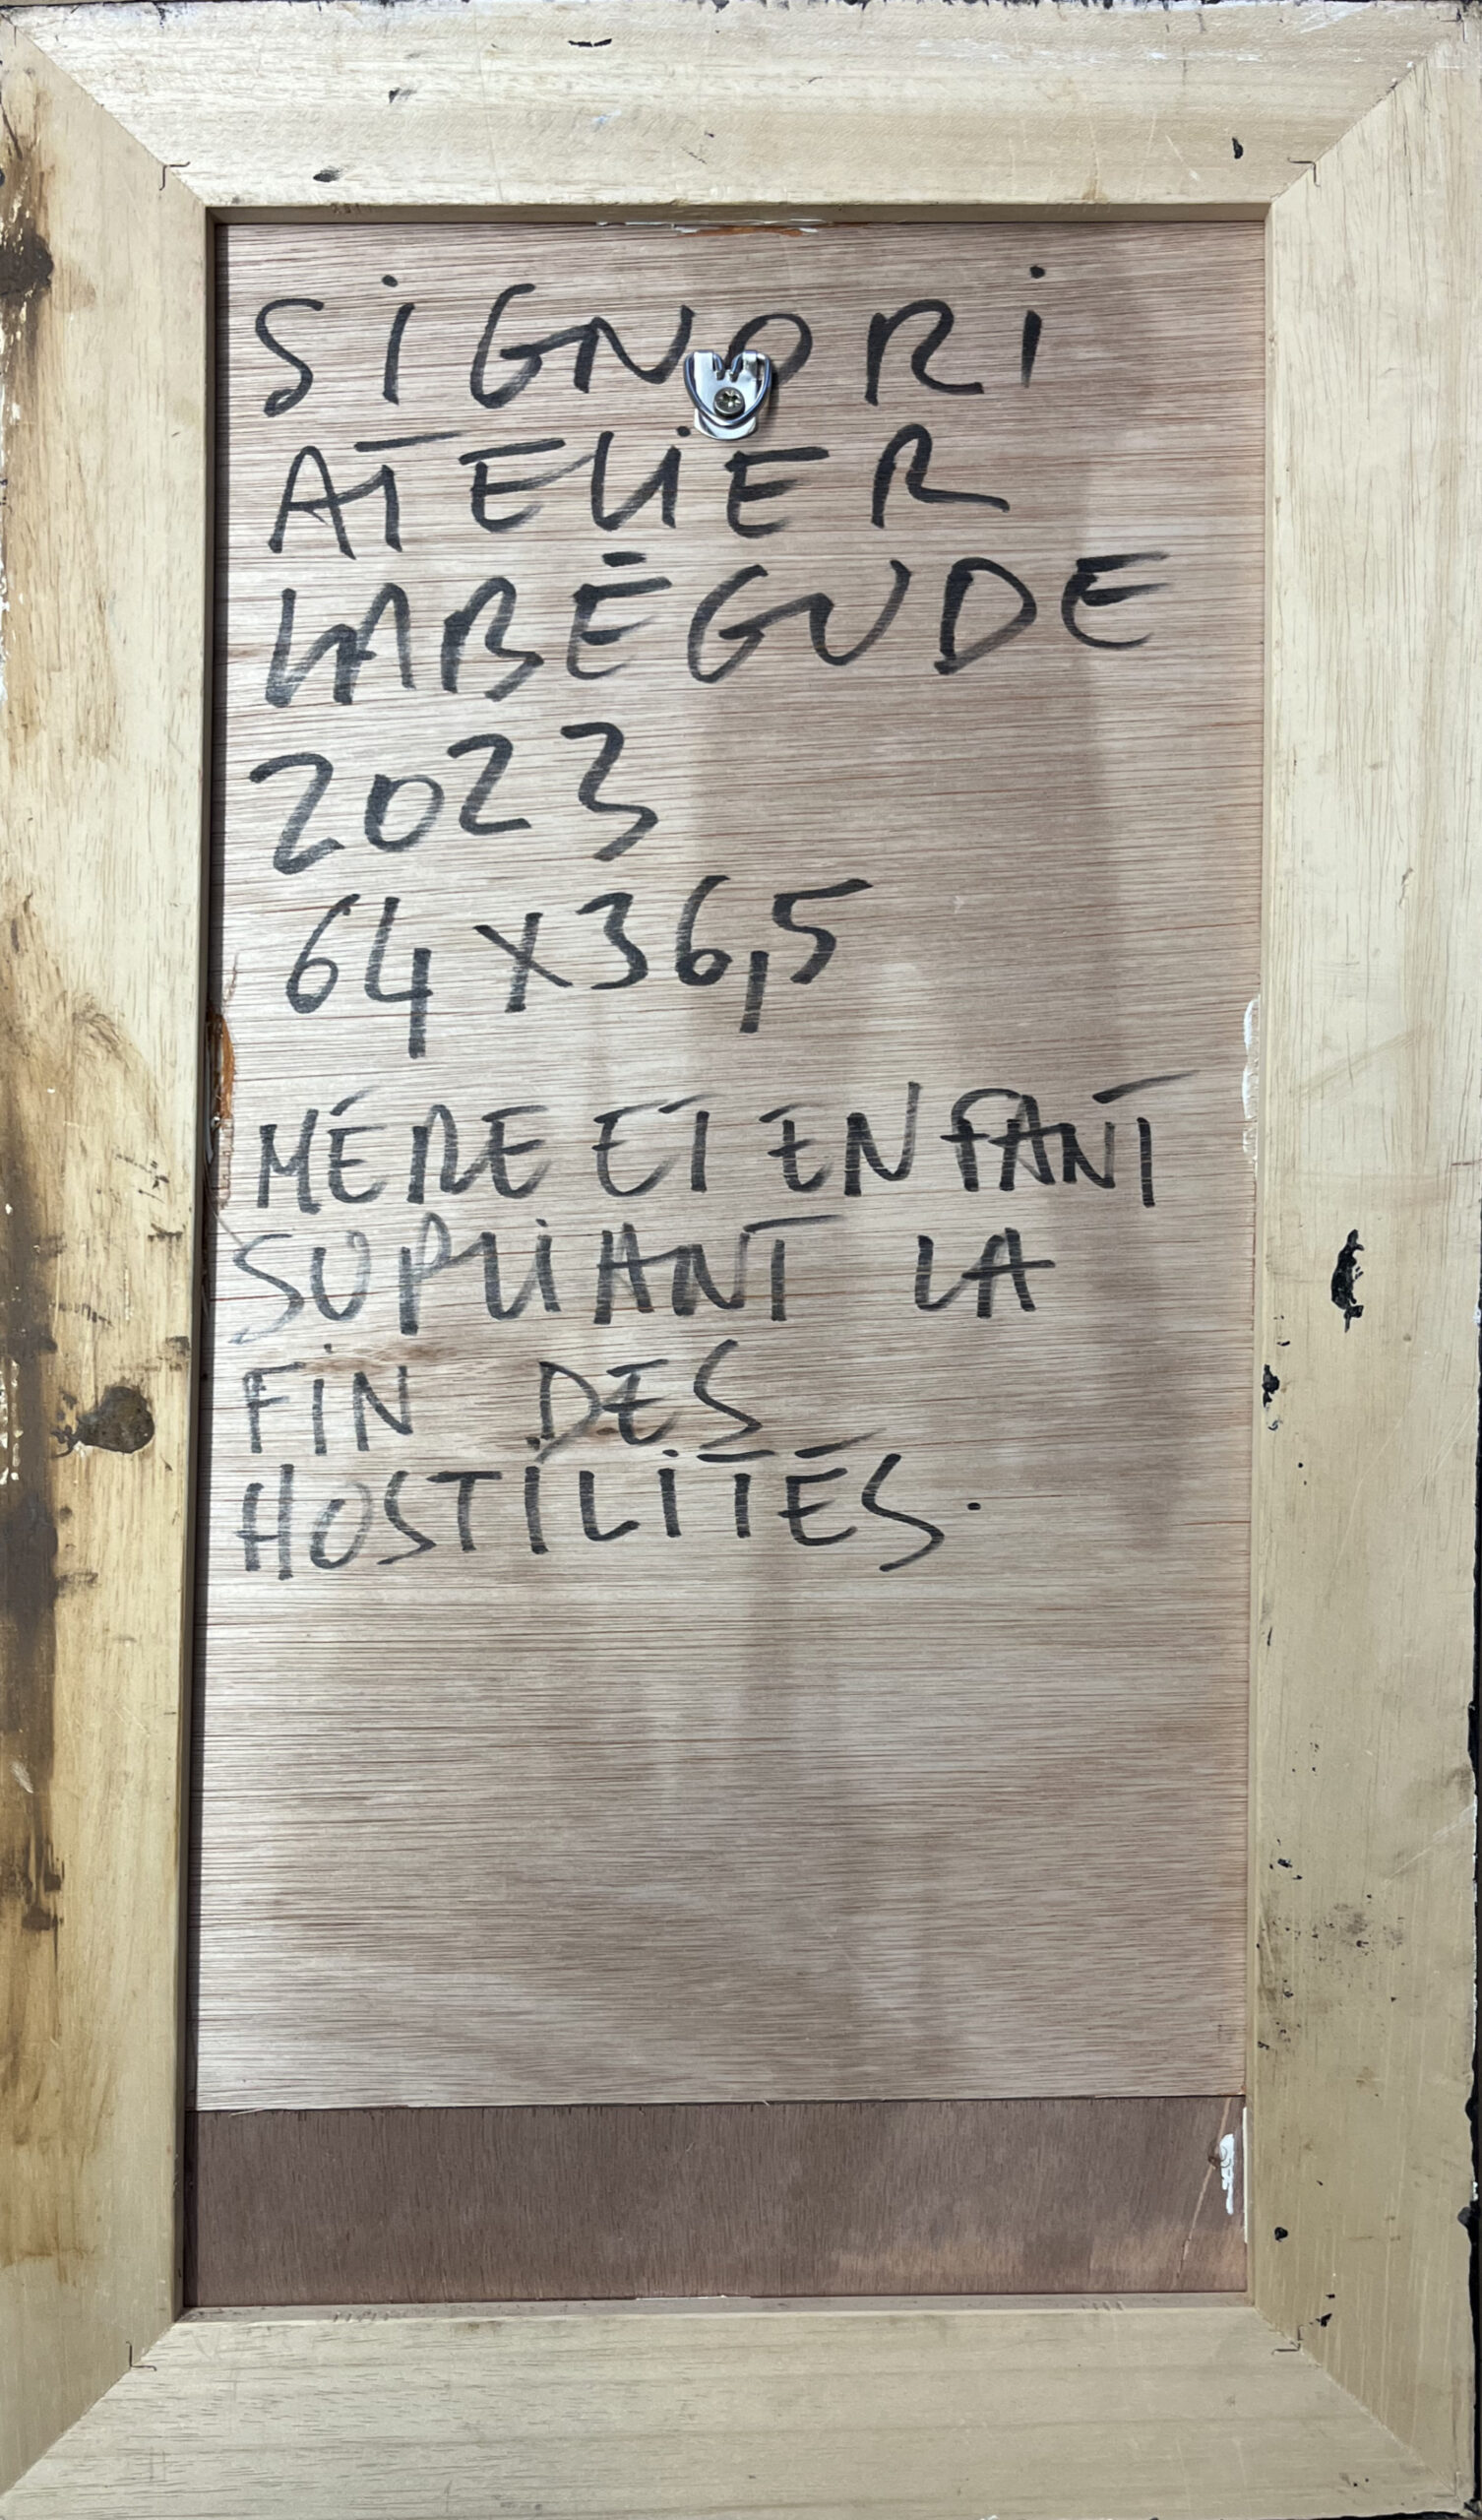 SiGNORi
ATELiER
LABÉGUDE
2023
64 x 36,5
MÉRE ET ENFANT
SUPLiANT LA
FiN DES
HOSTiLiTÉS.